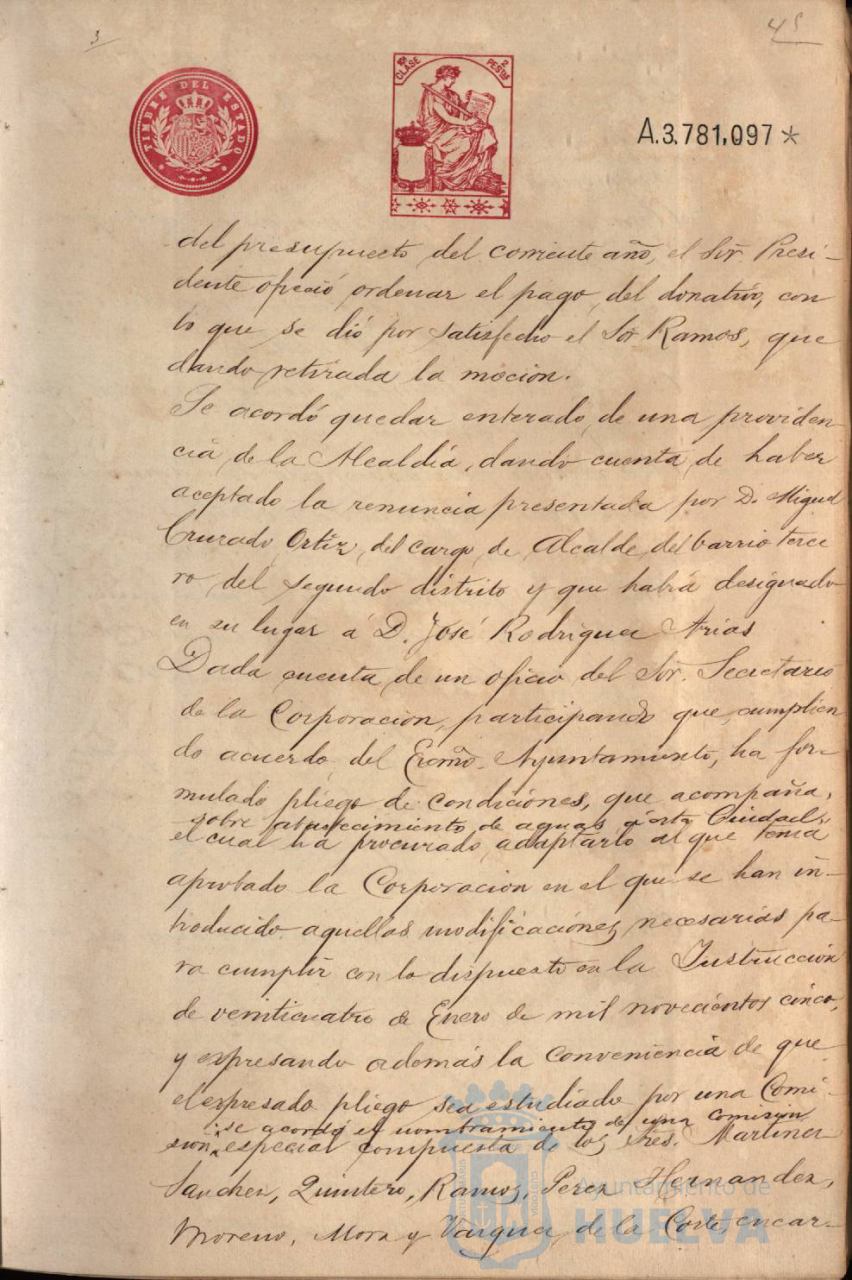 3
45
TIMBRE DEL ESTADO
10ª CLASE 2 PESTAS
A.3.781,097*
del presupuesto del corriente año, el Sor. Presi-
dente ofreció ordenar el pago del donativo, con
lo que se dió por satisfecho el Sor Ramos, que
dando retirada la moción.
Se acordó quedar enterado de una providen
cia de la Alcaldía, dando cuenta de haber
aceptado la renuncia presentada por D. Miguel
Cruzado Ortíz, del cargo de Alcalde del barrio terce
ro del segundo distrito y que habiá designado
en su lugar á D. José Rodriguez Arias
Dada cuenta de un oficio del Sor. Secretario
de la Corporación, participando que, cumplien
do acuerdo del Excmo. Ayuntamiento, ha for-
mulado pliego de condiciones, que acompaña,
sobre abastecimiento de aguas á esta Ciudad,
el cual ha procurado adaptarlo al que tenia
aprobado la Corporación en el que se han in-
troducido aquellas modificaciones necesarias pa-
ra cumplir con lo dispuesto en la Instrucción
de veinticuatro de Enero de mil novecientos cinco,
y expresando además la conveniencia de que
el expresado pliego sea estudiado por una Comi-
se acordó el nombramiento de una comisión
sión, especial compuesta de los Sres. Martinez
Sanchez, Quintero, Ramos, Perez Hernandez,
Moreno, Mora y Vazquez de la Corte, encar-
Ayuntamiento de
HUELVA